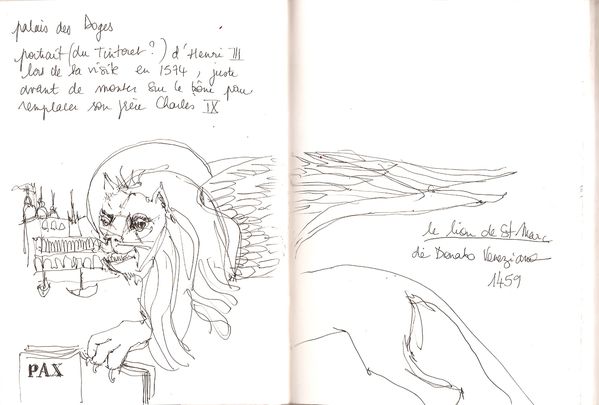 palais des Doges
portrait (du Tintoret ?) d'Henri III
lors de la visite en 1574, juste
avant de monter sur le trône pour
remplacer son frère Charles IX
le lion de St Marc
de Donato Veneziano
1459
PAX